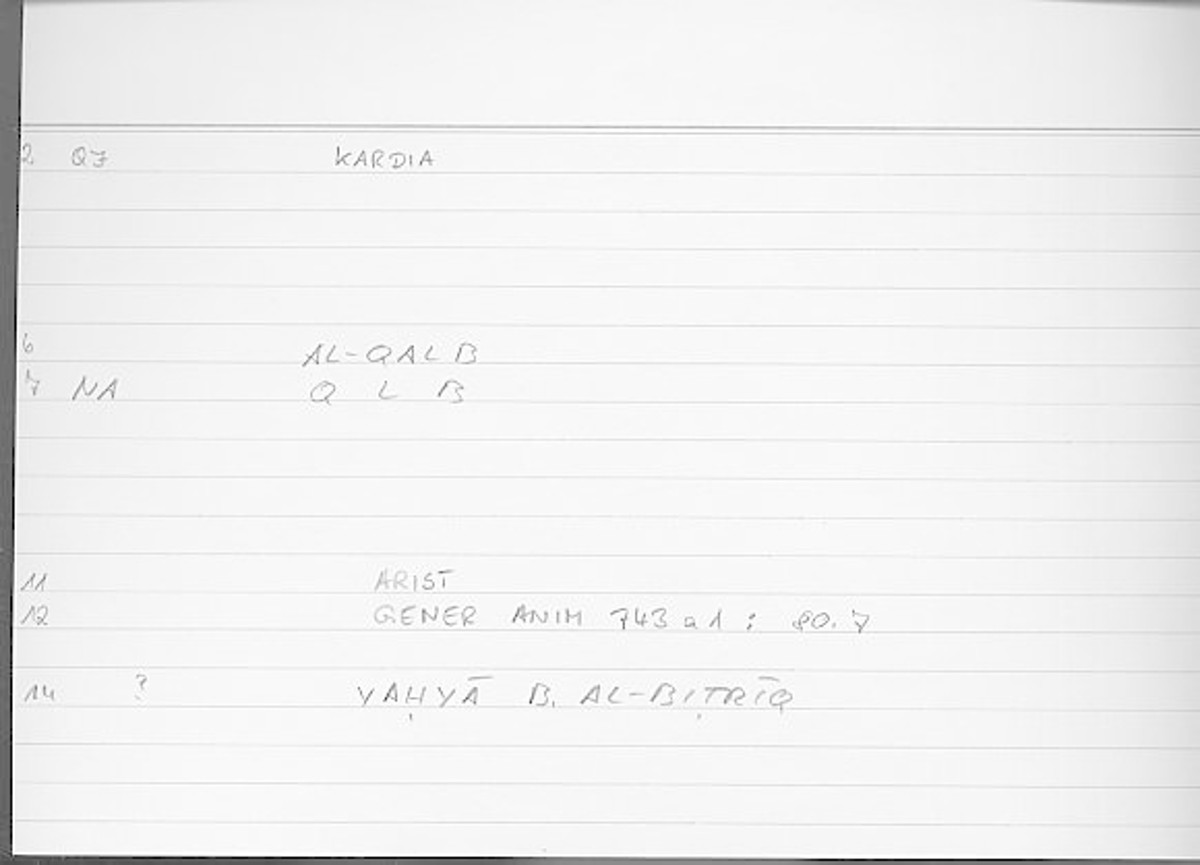 2 QJ KARDIA
6 AL-QALB
7 NA Q L B
11 ARIST
12 GENER ANIM 743 a 1 : 80.7
14 ? YAḤYĀ B. AL-BIṬRĪQ